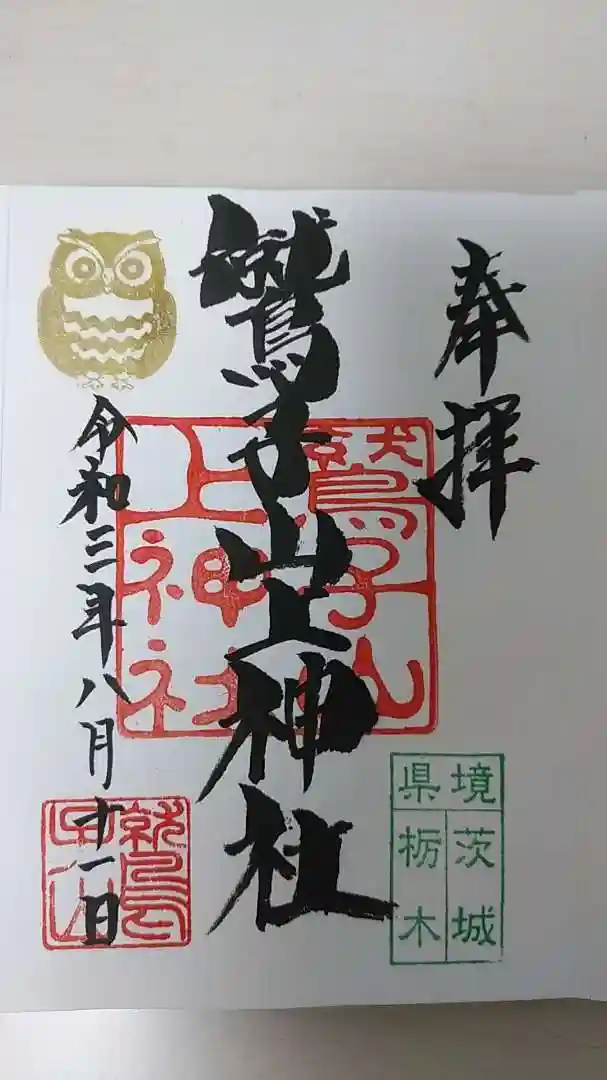 奉拝
鷲子山上神社
令和三年八月十一日
鷲子山
上神社
県境
茨城
栃木